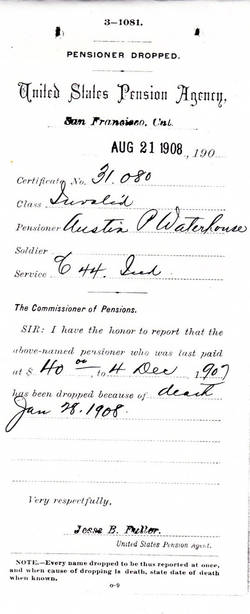 3—1081.
PENSIONER DROPPED.
United States Pension Agency,
San Francisco, Cal.
AUG 21 1908, 190
Certificate No. 31.080
Class Invalid
Pensioner Austin P Waterhouse
Soldier
Service C 44. Ind.
The Commissioner of Pensions.
SIR: I have the honor to report that the
above-named pensioner who was last paid
at $ 40 00, to 4 Dec, 1907
has been dropped because of death
Jan 28. 1908.
Very respectfully,
Jesse B. Fuller.
United States Pension Agent.
NOTE.—Every name dropped to be thus reported at once,
and when cause of dropping is death, state date of death
when known.
6-9